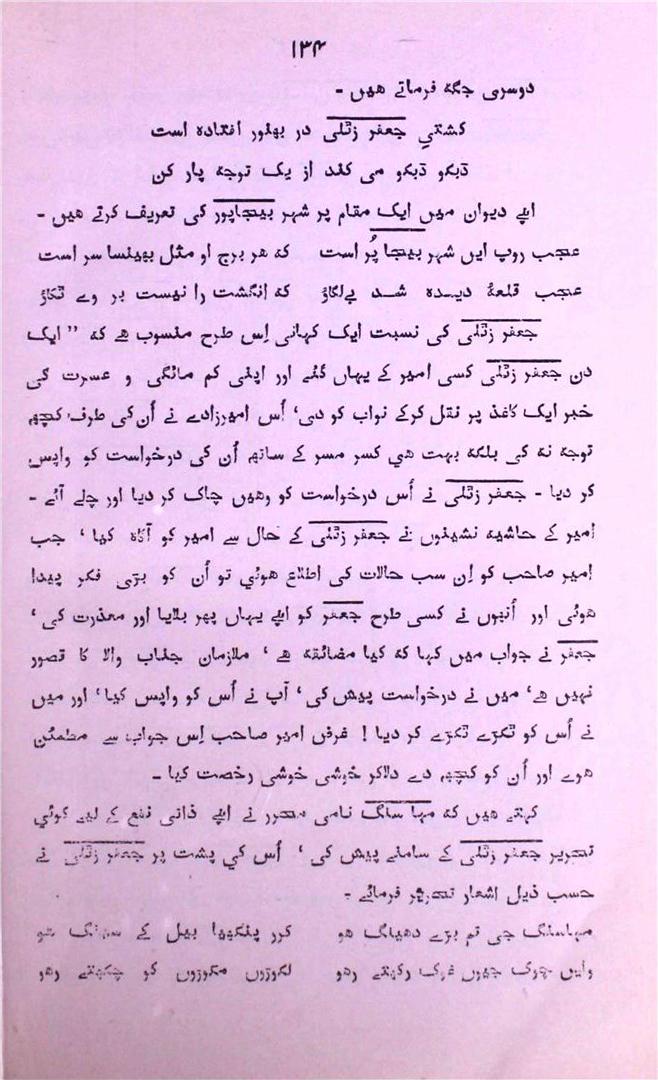 ۱۳۴
دوسری جگہ فرماتے ھیں -
کشتیِ جعفر زٹلی در بھنور افتادہ است
ڈبکو ڈبکو می کند از یک توجہ پار کن
اپنے دیوان میں ایک مقام پر شہر بیجاپور کی تعریف کرتے ھیں -
عجب روپ ایں شہر بیجا پُر است کہ ھر برج او مثل بھینسا سر است
عجب قلعۂ دیدہ شد بےلگاؤ کہ انگشت را نیست بر وے ٹکاؤ
جعفر زٹلی کی نسبت ایک کہانی اِس طرح منسوب ھے کہ ” ایک
دن جعفر زٹلی کسی امیر کے یہاں گئے اور اپنی کم مائگی و عسرت کی
خبر ایک کاغذ پر نقل کرکے نواب کو دی‘ اُس امیرزادے نے اُن کی طرف کچھ
توجہ نہ کی بلکہ بہت ھي کسر مسر کے ساتھ اُن کی درخواست کو واپس
کر دیا - جعفر زٹلی نے اُس درخواست کو وھیں چاک کر دیا اور چلے آئے -
امیر کے حاشیہ نشینوں نے جعفر زٹلی کے حال سے امیر کو آگاہ کیا ‘ جب
امیر صاحب کو اِن سب حالات کی اطلاع ھوئي تو اُن کو بڑی فکر پیدا
ھوئی اور اُنہوں نے کسی طرح جعفر کو اپنے یہاں پھر بلایا اور معذرت کی ‘
جعفر نے جواب میں کہا کہ کیا مضائقہ ھے ‘ ملازمان جناب والا کا قصور
نہیں ھے‘ میں نے درخواست پیش کی ‘ آپ نے اُس کو واپس کیا‘ اور میں
نے اُس کو ٹکڑے ٹکڑے کر دیا ! غرض امیر صاحب اِس جواب سے مطمئن
ھوے اور اُن کو کچھ دے دلاکر خوشی خوشی رخصت کیا -
کہتے ھیں کہ مہا سنگ نامی محرر نے اپنے ذاتی نفع کے لیے کوئي
تحریر جعفر زٹلی کے سامنے پیش کی ‘ اُس کي پشت پر جعفر زٹلی نے
حسب ذیل اشعار تحریر فرمائے -
مہاسنگ جی تم بڑے دھینگ ھو کرر پنکھیا بیل کے ھو
وایں جوں غرک رکھتے رھو لکوڑوں مکوڑوں کو چکھتے رھو